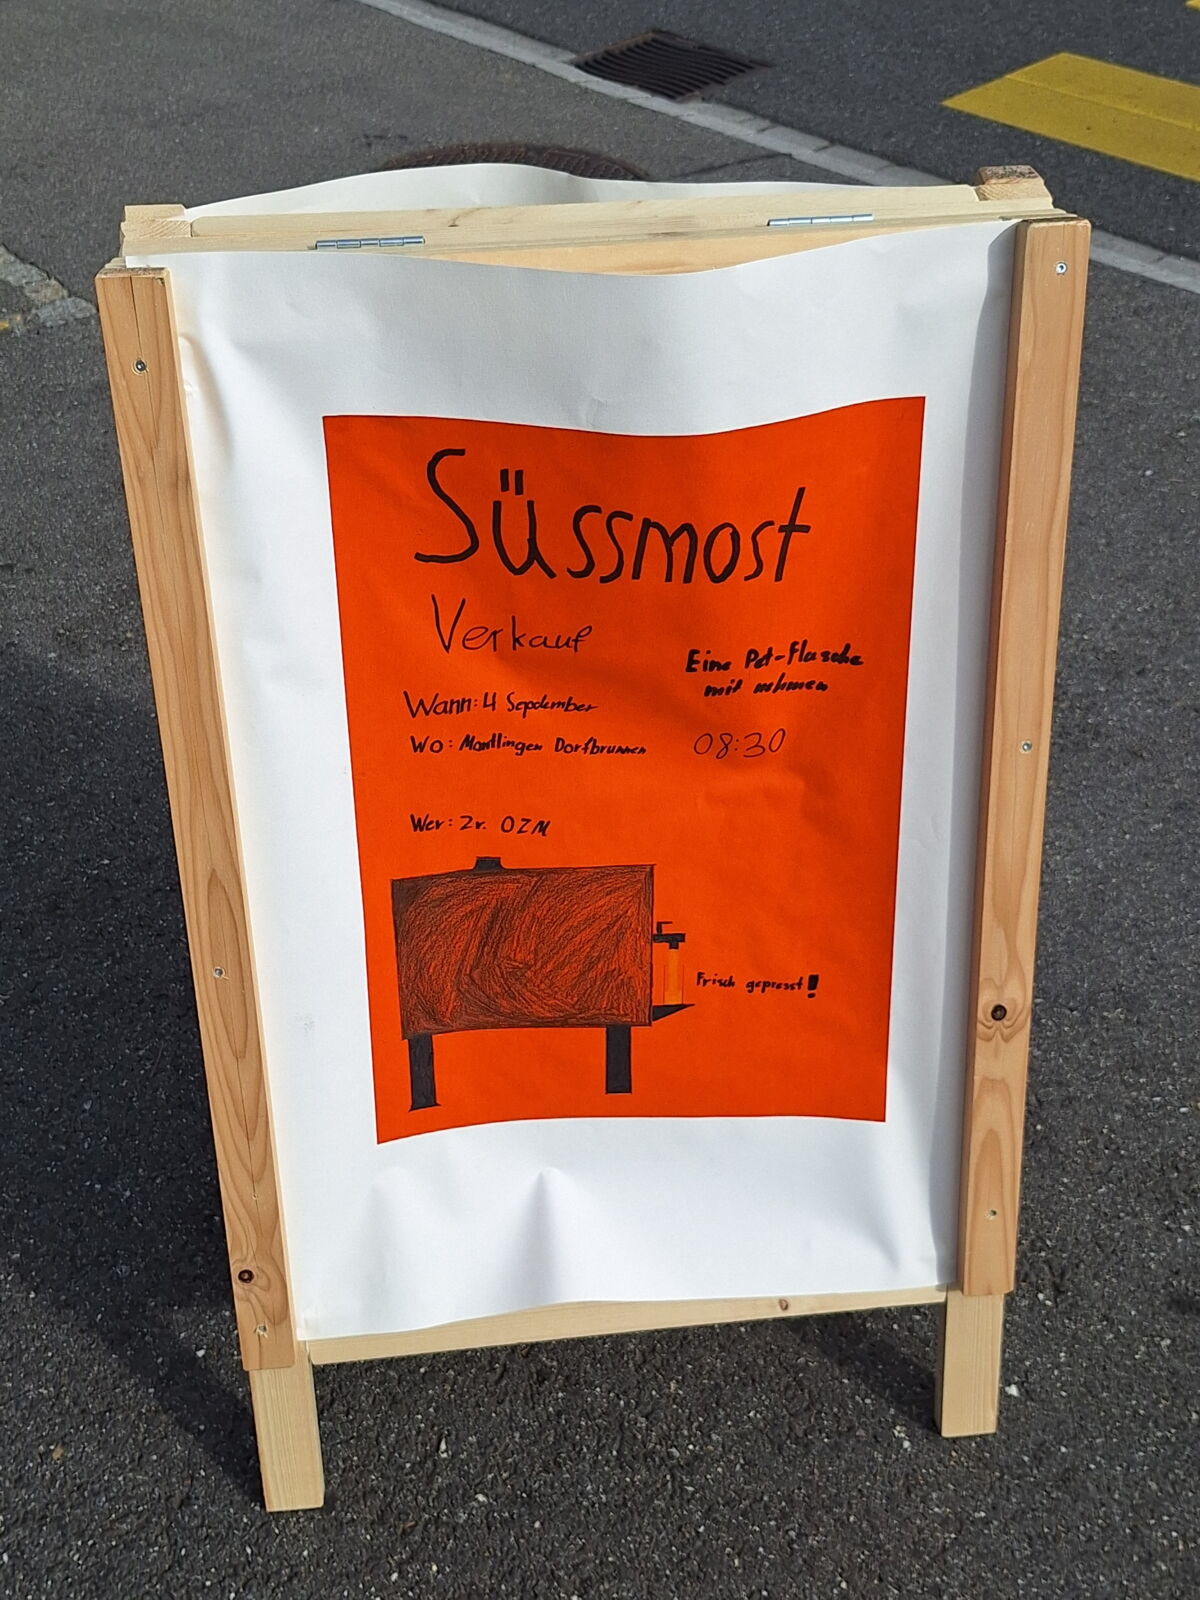 Süssmost
Verkauf
Eine Pet-flasche
mit nehmen
Wann: 4 September
Wo: Montlingen Dorfbrunnen
08:30
Wer: 2r. OZM
Frisch gepresst!